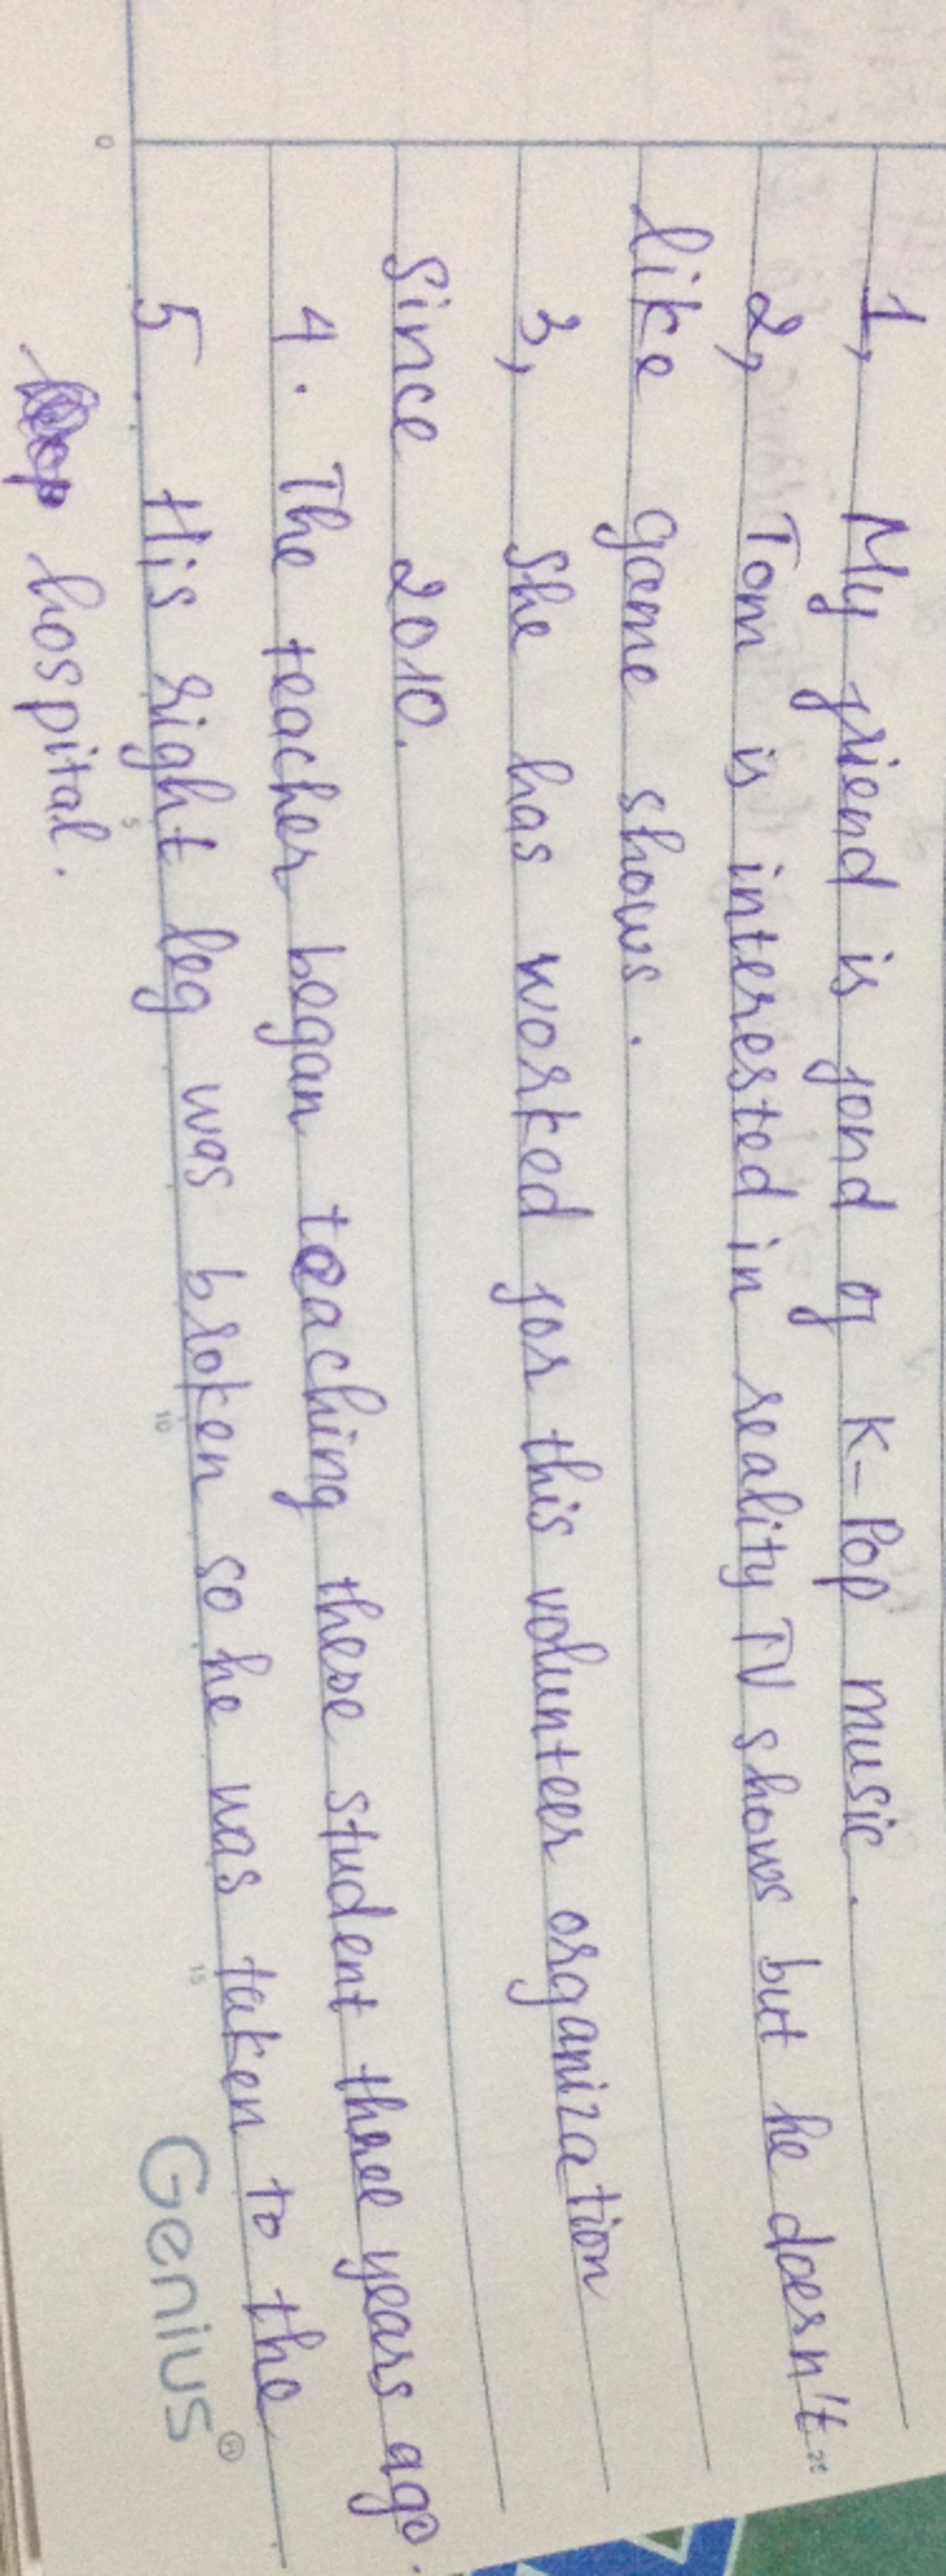 1, My friend is fond of K-Pop music.
2, Tom is interested in reality TV shows but he doesn't
like game shows.
3, She has worked for this volunteer organization
since 2010.
4. The teacher began teaching these student three years ago.
5. His right leg was broken so he was taken to the
hospital.
0 5 10 15
Genius